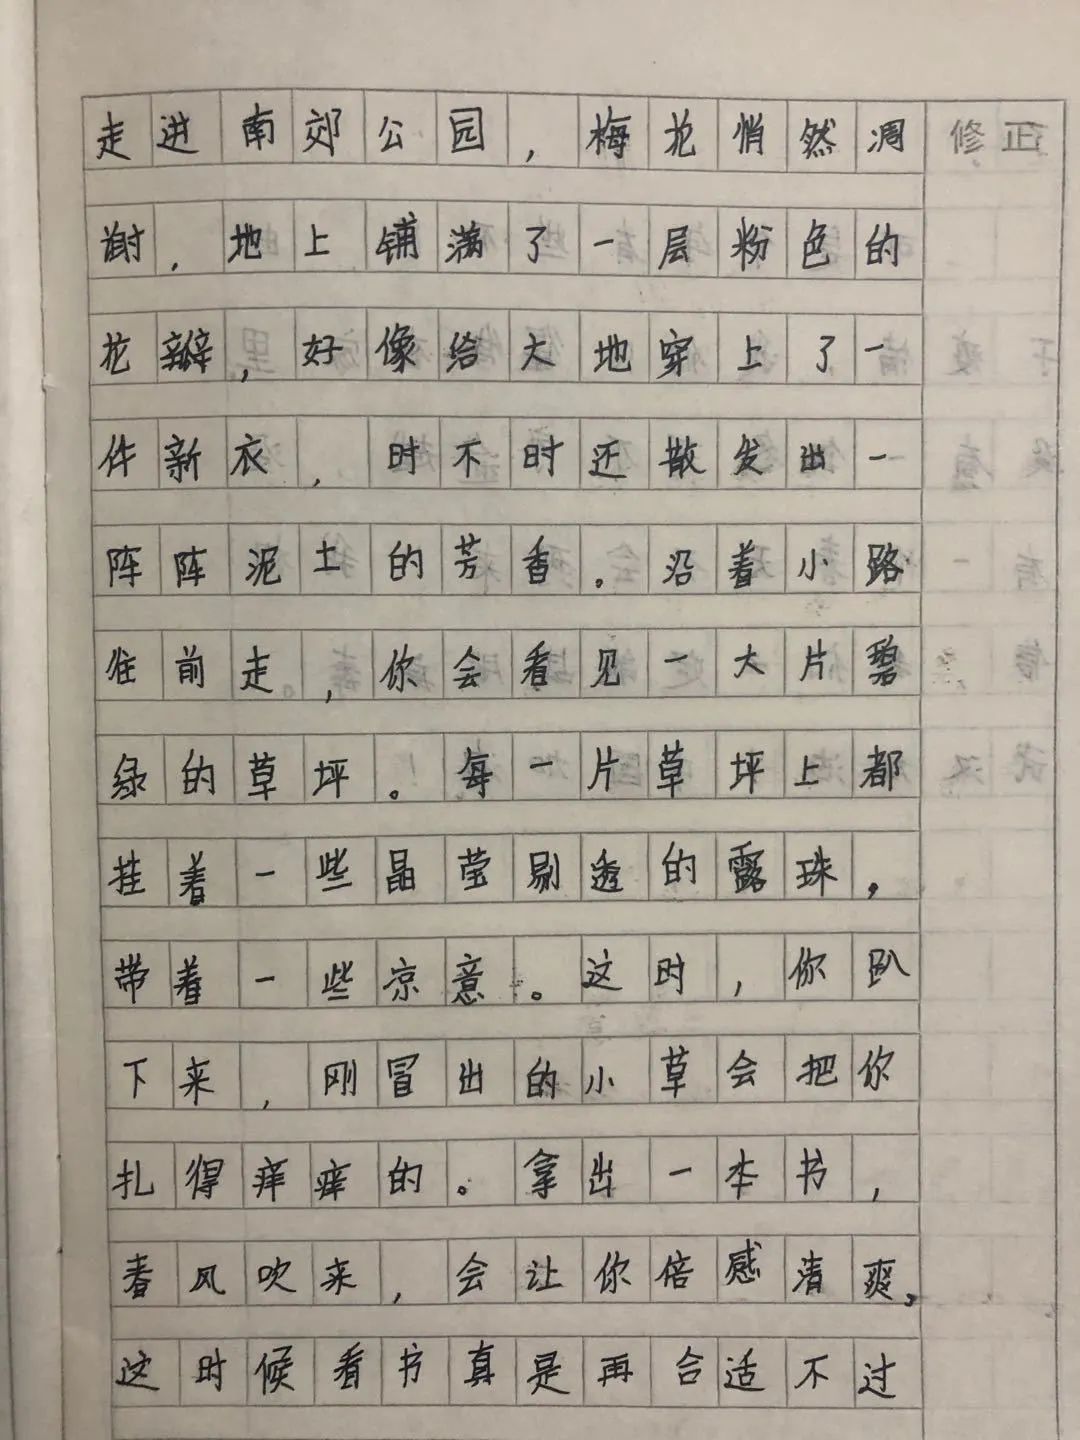 走进南郊公园，梅花悄然凋
修正
谢，地上铺满了一层粉色的
花瓣，好像给大地穿上了一
件新衣，时不时还散发出一
阵阵泥土的芳香。沿着小路
往前走，你会看见一大片碧
绿的草坪。每一片草坪上都
挂着一些晶莹剔透的露珠，
带着一些凉意。这时，你趴
下来，刚冒出的小草会把你
扎得痒痒的。拿出一本书，
春风吹来，会让你倍感清爽，
这时候看书真是再合适不过